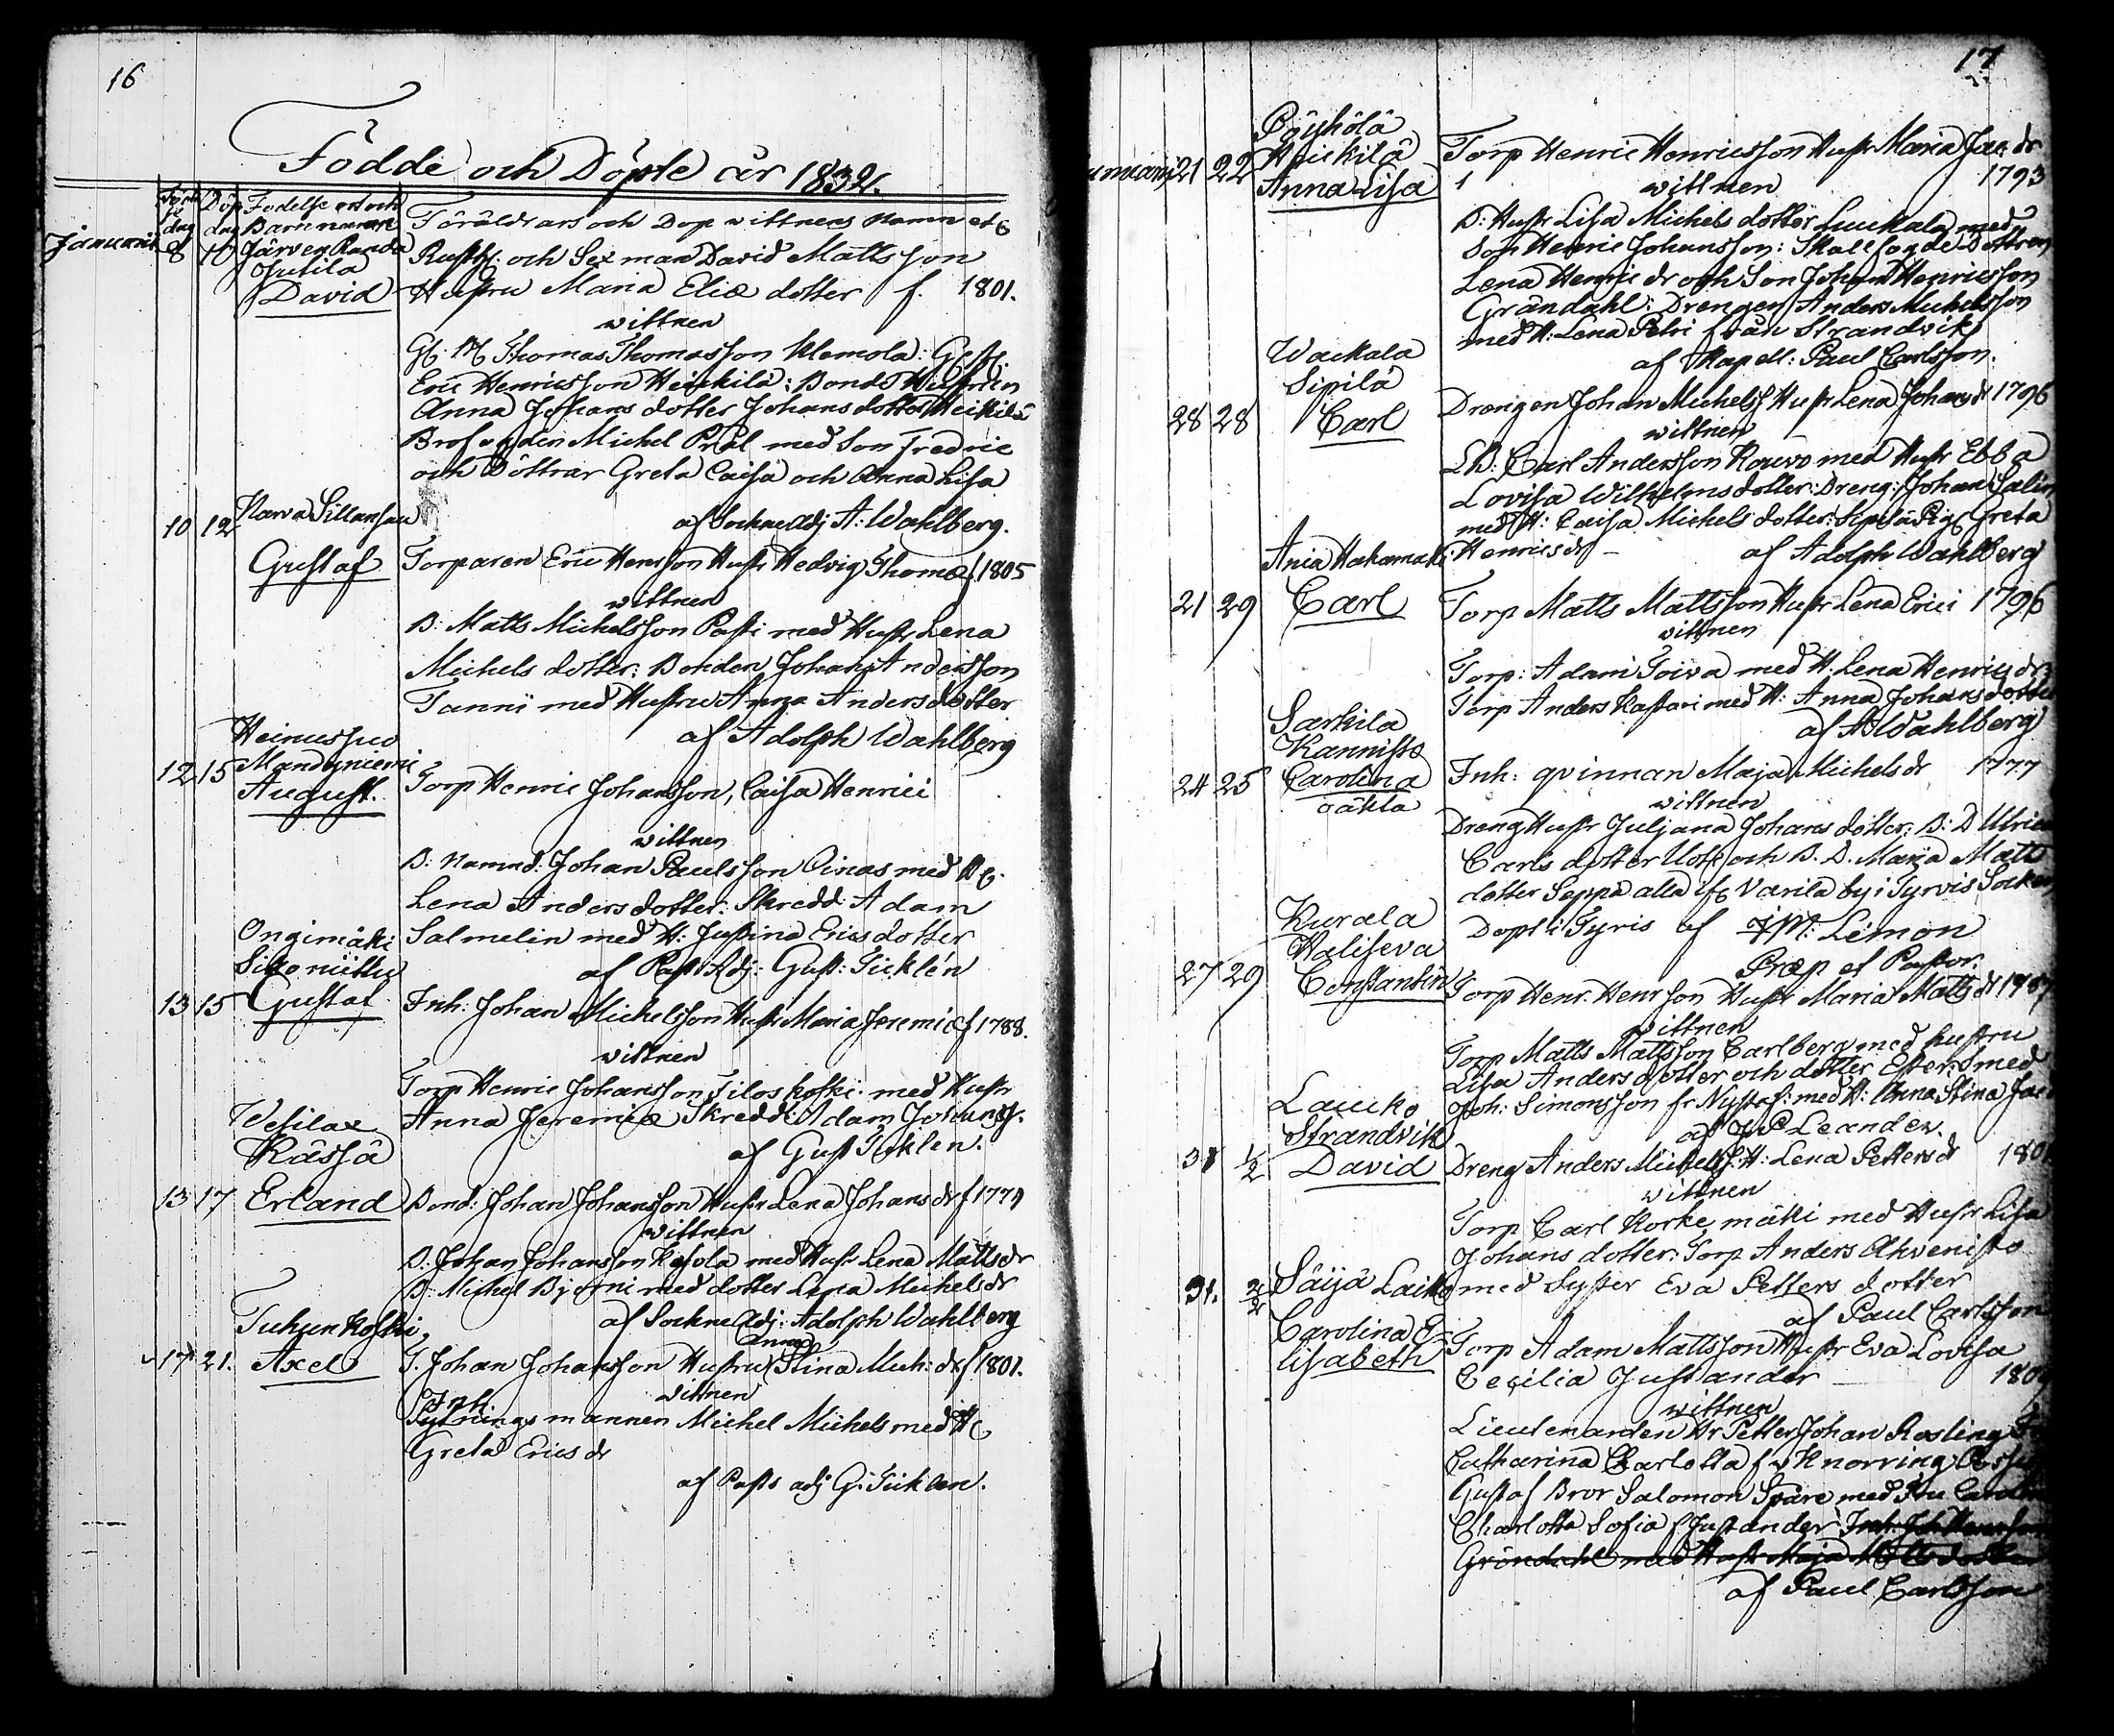 16
Födde och Döpte år 1832.
Födelse ort och
Barn namn
Föräldrars och Dop wittnens Namn etc
Januarii 8 10
Järven Randa
Jutila
David
Rusth: och Sexman David Mattsson
Hustru Maria Eliæ dotter f. 1801.
wittnen
Thomas Thomasson Klemola:
Eric Henricsson Heickilä: Bonds Hustrun
Anna Johans dotter Johans dotter Heikilä
Michel Präl med Son Fredric
och Döttrar Greta Caisa och Anna Lisa
af Sockne Adj A: Wahlberg.
10 12
Gustaf
Torparen Eric Hensson Hustr Hedvig Thomæ f 1805
wittnen
B: Matts Michelsson Pasti med Hustr Lena
Michels dotter: Bonden Johan Andersson
Tanni med Hustru Anna Anders dotter
af Adolph Wahlberg
12 15
August.
Torp Henric Johansson, Caisa Henrici
wittnen
B: Namnd: Johan Paulsson Oinas med H
Lena Anders dotter: Skredd: Adam
Salmelin med H: Justina Erics dotter
af Past: Adj: Gust: Ticklén
13 15
Ongimäki
Gustaf
Inh: Johan Michelsson Hustr Maria Jeremiæ f 1788.
wittnen
Torp Henric Johansson Tiloskoski med Hustr
Anna Jeremiæ Skredd: Adam
af Gust Ticklen.
13 17
Wesilax
Rässä
Erland
Bond: Johan Johansson Hustr Lena Johans dr f 1779
wittnen
B: Johan Johansson Kesola med Hustr Lena Matts dr
B: Michel Bjerni med dotter Lena Michels dr
af Sockne Adj: Adolph Wahlberg
17 21.
Tuhunkoski
Axel
Anna
T. Johan Johansson Hustru Stina Mich: dr f 1801.
wittnen
Inh.
Sytnings mannen Michel Michels med H
Greta Erics dr
af Pasts adj G: Ticklen.
17
21 22
Pöyhölä
Heickilä
Anna Lisa
Torp Henric Henricsson Hustr Maria Jac. dr
1793
wittnen
B: Hustr Lisa Michels dotter Luukala med
Son Henric Johansson: Skallfogde Dottren
Lena Henric dr och Son Johan Henricsson
Gröndahl: Drengen Anders Michelsson
med H: Lena Petri från Strandvik
af Kapell: Paul Carlsson.
28 28
Wackala
Sipilä
Carl
Drengen Johan Michelss Hustr Lena Johans dr 1796
wittnen
Carl Andersson Rouvo med Hustr Ebba
Lovisa Wilhelms dotter: Dreng: Johan Salin
med H: Caisa Michels dotter: Sipilä Pig Greta
Henrics dr — af Adolph Wahlberg
21 29
Ania Hakamaki
Carl
Torp Matts Mattsson Hustr Lena Erici 1796
wittnen
Torp: Adam Toiva med H: Lena Henrics dr
Torp Anders Kastari med H: Anna Johans dotter
af A Wahlberg
24 25
Sarkila
Kannisto
Carolina
oäkta
Inh: qvinnan Maja Michels dr 1777
wittnen
Dreng Hustr Juljana Johans dotter: B: D Ulrica
Carls dotter Uoti och B. D. Maria Matts
dotter Seppä alla ifr Varila by i Tyrvis Socken
Döpt i Tyris af Limon
Præp et Pastor.
27 29
Kurala
Haliseva
Constantin
Torp Henr. Henrsson Hustr Maria Matts dr
wittnen
Torp Matts Mattsson Carlberg med hustru
Lisa Anders dotter och dotter Ester: Smed
Joh: Simonsson fr Nystaf: med H: Anna Stina
af Leander.
31 1/2
Laucko
Strandvik
David
Dreng Anders Michelss: H: Lena Petters dr
wittnen
Torp Carl Korke mäki med Hustr Lisa
Johans dotter: Torp Anders Ahvenisto
med Syster Eva Petters dotter
af Paul Carlsson
31. 2/2
Säijä Laiko
Carolina E-
lisabeth
Torp Adam Mattsson Hustr Eva Lovisa
Cecilia Justander
wittnen
Lieutenanten Hr Petter Johan Rosling
Catharina Charlotta f v Knorring
Gustaf Bror Salomon Spåre med Fru Carolina
Charlotta Sofia f Justander
Gröndahl med Hustr Maja Matts dotter
af Paul Carlsson